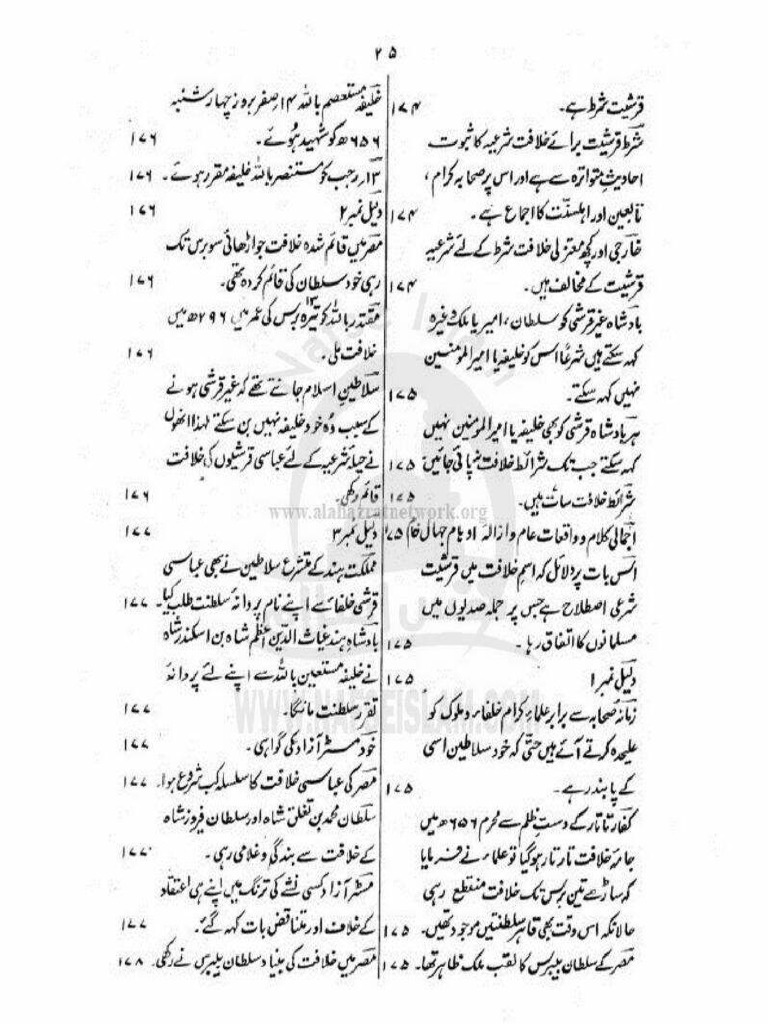 ۲۵
قرشیت شرط ہے۔ ۱۷۴
شرط قرشیت برائے خلافت شرعیہ کا ثبوت
احادیثِ متواترہ سے ہے اور اس پر صحابہ کرام ،
تابعین اور اہلسنّت کا اجماع ہے۔ ۱۷۴
خارجی اور کچھ معتزلی خلافت شرط کے لئے شرعیہ
قرشیت کے مخالف ہیں۔ ۱۷۴
بادشاہ غیر قرشی کو سلطان ، امیر یا ملک وغیرہ
کہہ سکتے ہیں شرعاً اس کو خلیفہ یا امیر المومنین
نہیں کہہ سکتے۔ ۱۷۵
ہر بادشاہ قرشی کو بھی خلیفہ یا امیر المومنین نہیں
کہہ سکتے جب تک شرائط خلافت نہ پائی جائیں ۱۷۵
شرائط خلافت سات ہیں۔ ۱۷۵
اجمالی کلام و واقعات عام و ازالۂ اوہام جہال خام ۱۷۵
اس بات پر دلائل کہ اسمِ خلافت میں قرشیت
شرعی اصطلاح ہے جس پر جملہ صدیوں میں
مسلمانوں کا اتفاق رہا۔ ۱۷۵
دلیل نمبر ۱ ۱۷۵
زمانۂ صحابہ سے برابر علماءِ کرام خلفاء و ملوک کو
علیحدہ کرتے آئے ہیں حتّٰی کہ خود سلاطین اسی
کے پابند رہے۔ ۱۷۵
کفار تاتار کے دستِ ظلم سے محرم ۶۵۶ھ میں
جامۂ خلافت تار تار ہوگیا تو علماء نے فرمایا
کہ ساڑھے تین برس تک خلافت منقطع رہی
حالانکہ اس وقت بھی قاہر سلطنتیں موجود تھیں۔ ۱۷۵
مصر کے سلطان بیبرس کا لقب ملک ظاہر تھا۔ ۱۷۵
خلیفہ مستعصم باللہ ۱۴ صفر بروز چہار شنبہ
۶۵۶ھ کو شہید ہُوئے۔ ۱۷۶
۱۳ رجب کو مستنصر باللہ خلیفہ مقرر ہوئے۔ ۱۷۶
دلیل نمبر ۲ ۱۷۶
مصر میں قائم شدہ خلافت جو اڑھائی سو برس تک
رہی خود سلطان کی قائم کردہ تھی۔ ۱۷۶
مقتدر باللہ کو تیرہ ۱۳ برس کی عمر میں ۲۹۶ھ میں
خلافت ملی۔ ۱۷۶
سلاطینِ اسلام جانتے تھے کہ غیر قرشی ہونے
کے سبب وُہ خود خلیفہ نہیں بن سکتے لہذا انھوں
نے حیلۂ شرعیہ کے لئے عباسی قرشیوں کی خلافت
قائم رکھی۔ ۱۷۶
دلیل نمبر ۳ ۱۷۷
مملکت ہند کے متشرع سلاطین نے بھی عباسی
قرشی خلفاء سے اپنے نام پروانۂ سلطنت طلب کیا۔ ۱۷۷
بادشاہ ہند غیاث الدین اعظم شاہ بن اسکندر شاہ
نے خلیفہ مستعین باللہ سے اپنے لئے پروانۂ
تقرر سلطنت مانگا۔ ۱۷۷
خود مسٹر آزاد کی گواہی۔ ۱۷۷
مصر کی عباسی خلافت کا سلسلہ کب شروع ہوا۔ ۱۷۷
سلطان محمد بن تغلق شاہ اور سلطان فیروز شاہ
کے خلافت سے بندگی و غلامی رہی۔ ۱۷۷
مسٹر آزاد کسی نشے کی ترنگ میں اپنے ہی اعتقاد
کے خلاف اور متناقض بات کہہ گئے۔ ۱۷۷
مصر میں خلافت کی بنیاد سلطان بیبرس نے رکھی۔ ۱۷۸
www.alahazratnetwork.org
WWW.NAFSEISLAM.COM
Nafse Islam